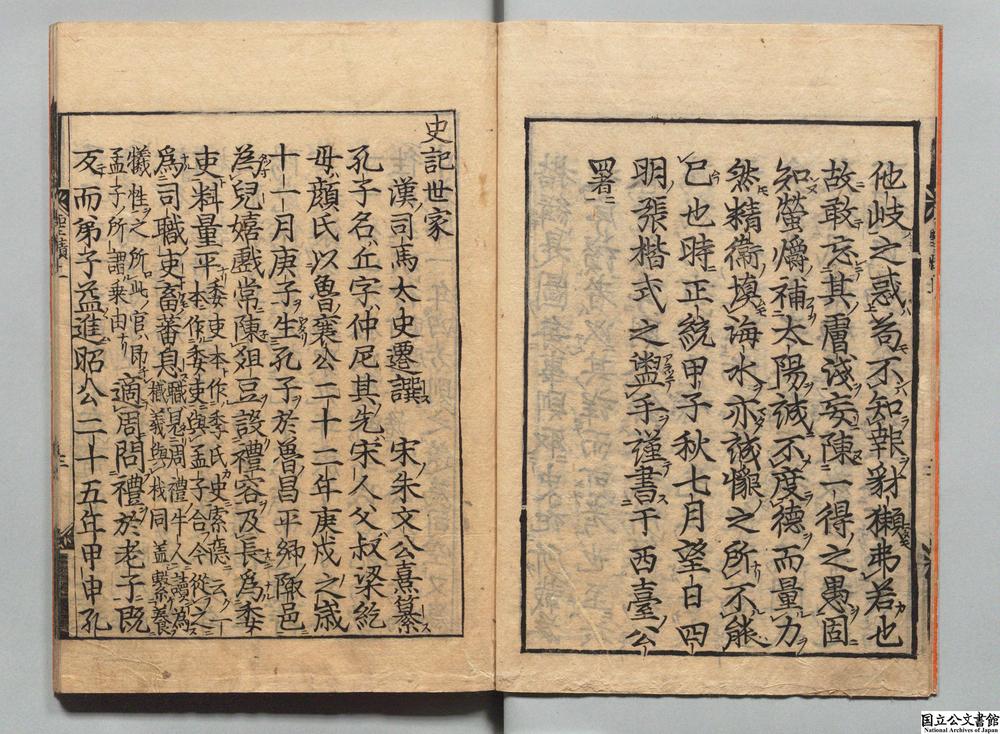 他岐之惑苟不知報豺獺弗若也
故敢忘其膚淺妄陳一得之愚固
知螢爝補太陽誠不度德而量力
然精衞塡海水亦誠懷之所不能
已也時正統甲子秋七月望日四
明張楷式之盥手謹書于西臺公
署
史記世家
漢司馬太史遷譔 宋朱文公熹纂
孔子名丘字仲尼其先宋人父叔梁紇
母顔氏以魯襄公二十二年庚戌之歲
十一月庚子生孔子於魯昌平鄕陬邑
爲兒嬉戲常陳俎豆設禮容及長爲委
吏料量平委吏本作季氏史索隱云一
本作委吏與孟子合今從之
爲司職吏畜蕃息職見周禮牛人讀爲
樴義與杙同蓋繫養
犧牲之所此官卽
孟子所謂乘田 適周問禮於老子旣
反而弟子益進昭公二十五年甲申孔
国立公文書館
National Archives of Japan